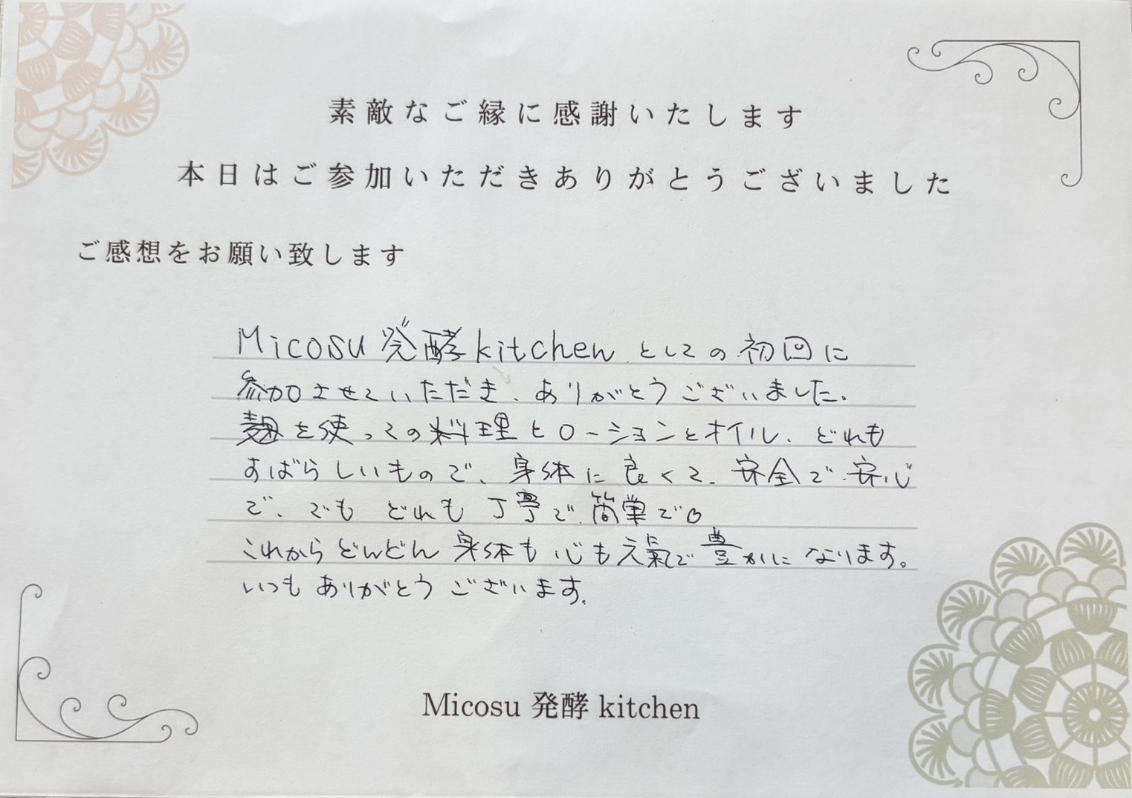 素敵なご縁に感謝いたします
本日はご参加いただきありがとうございました
ご感想をお願い致します
Micosu 発酵 kitchen としての初回に
参加させていただき、ありがとうございました。
麹を使っての料理とローションとオイル、どれも
すばらしいもので、身体に良くて、安全で安心
で、でも どれも 丁寧で簡単で。
これからどんどん 身体も心も元氣で豊かになります。
いつも ありがとう ございます。
Micosu 発酵 kitchen